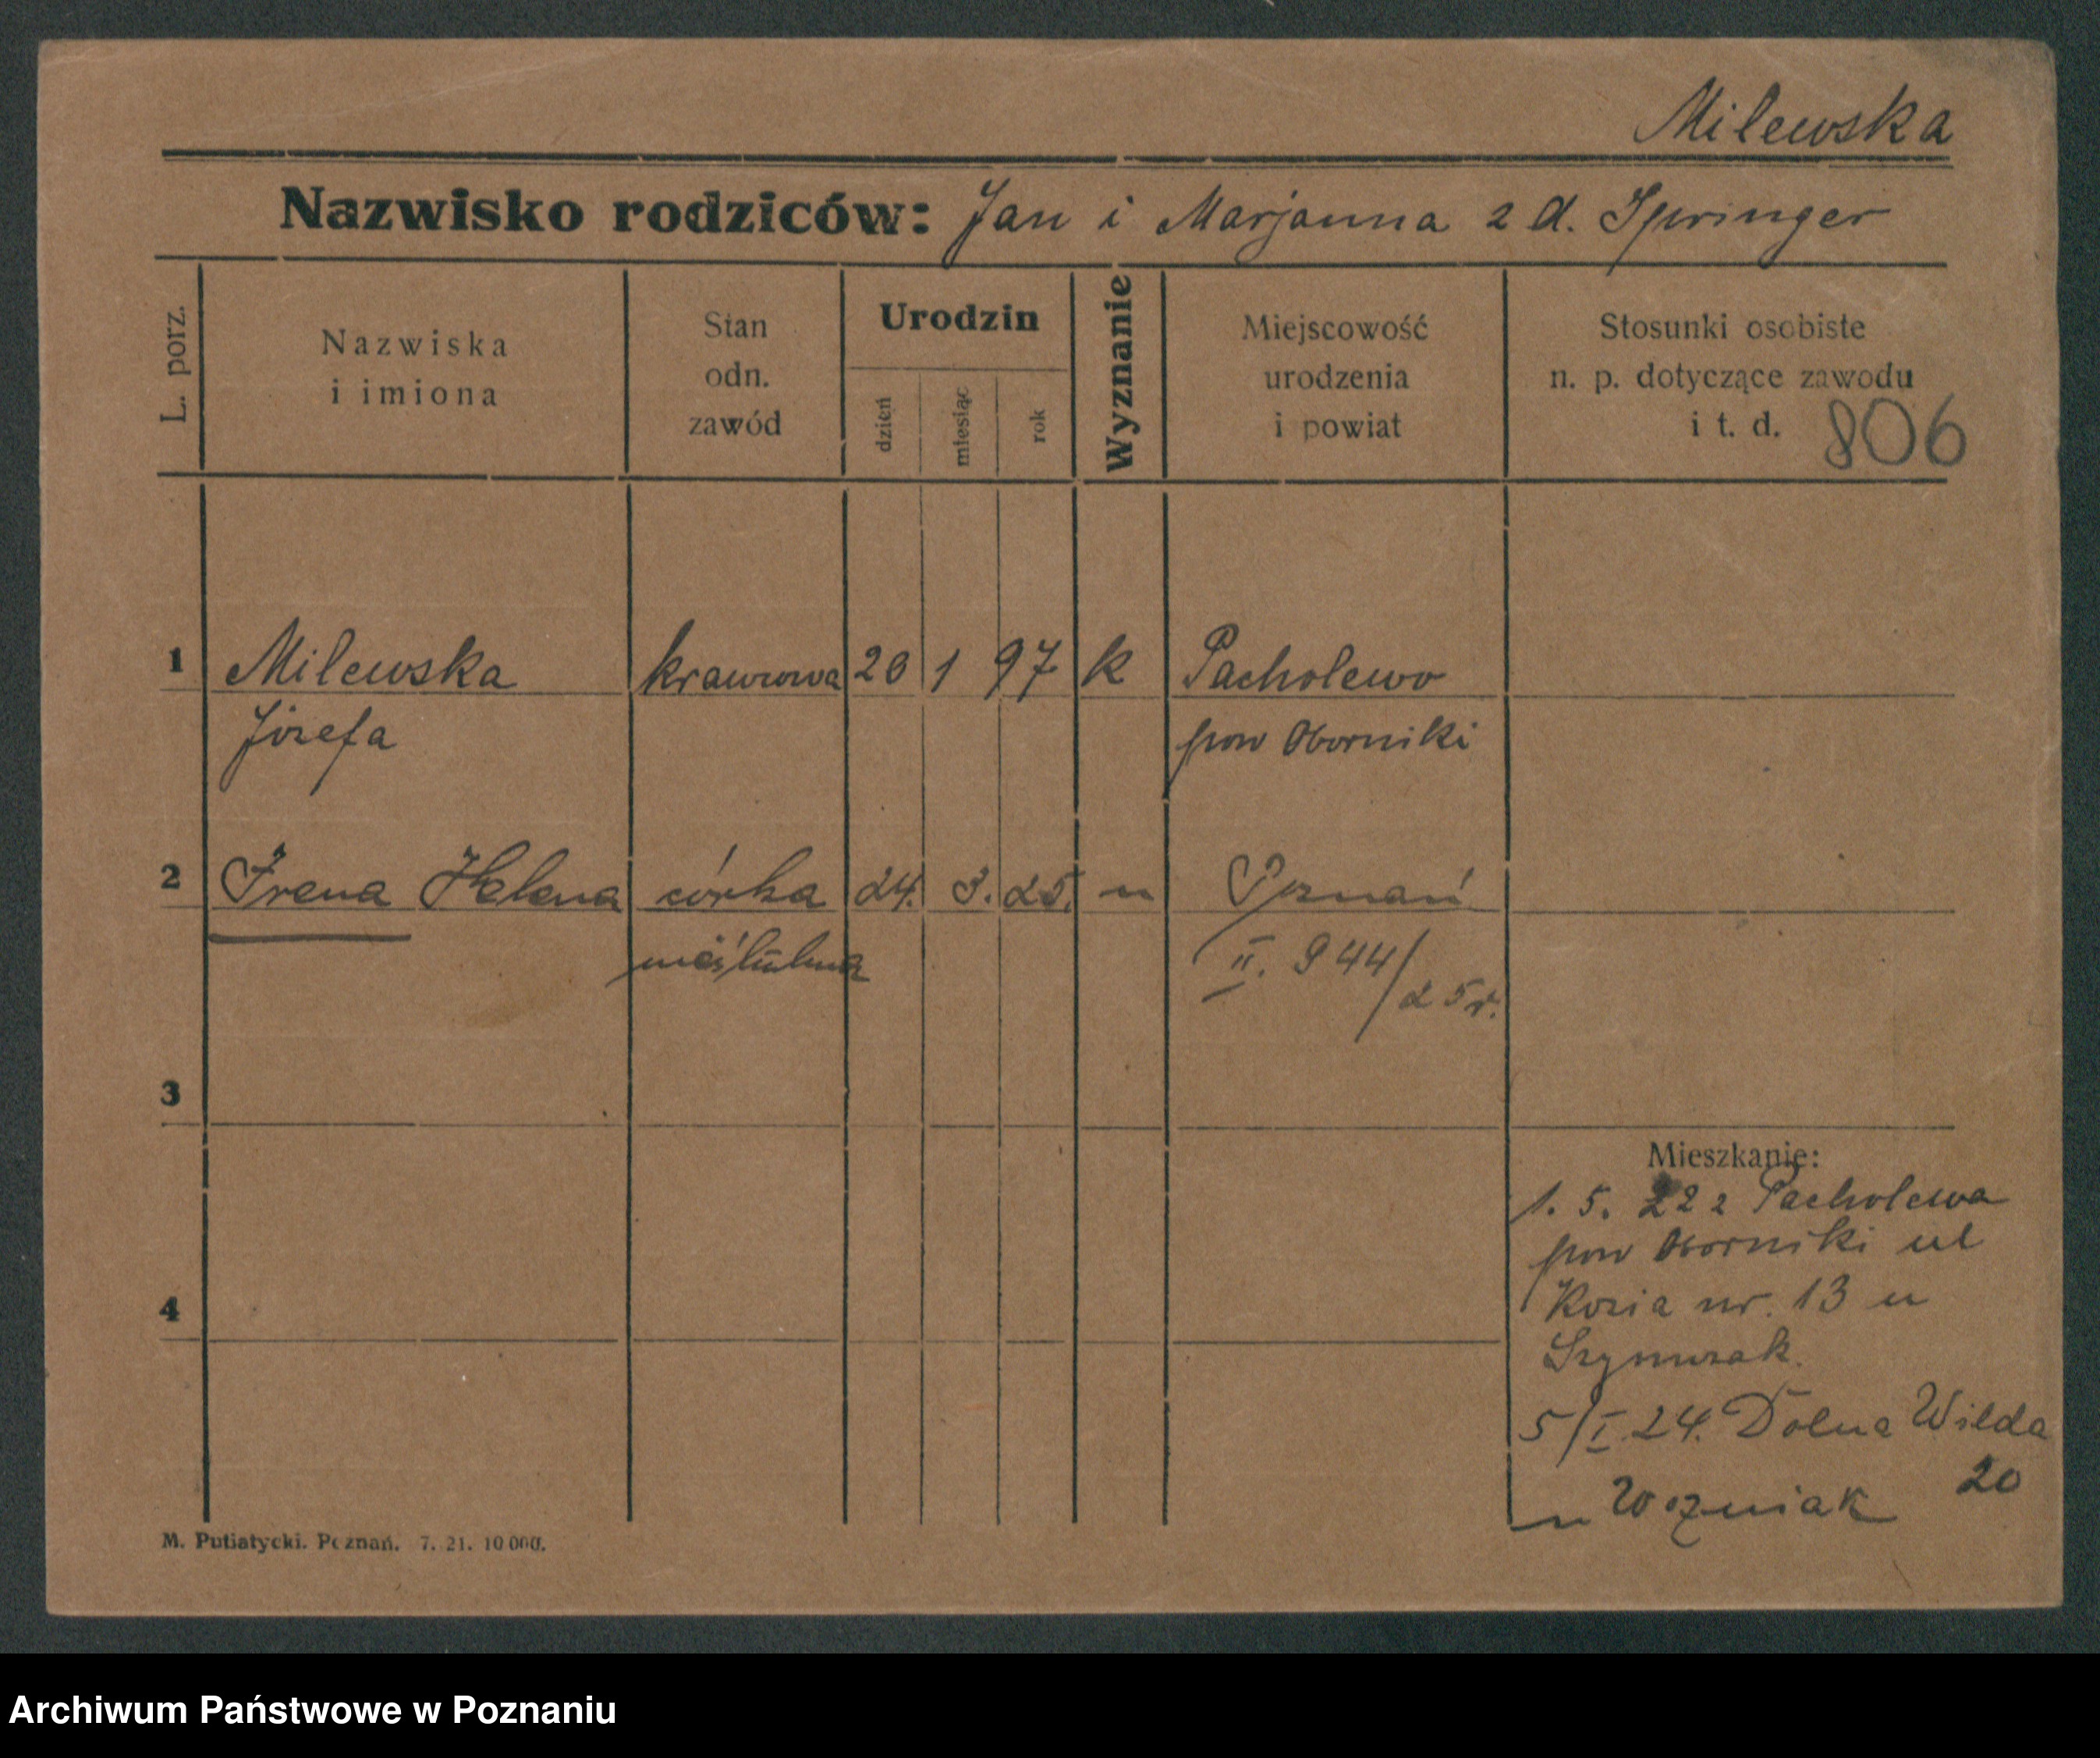 Milewska
Nazwisko rodziców: Jan i Marjanna z d. Springer
L. porz.
Nazwiska
i imiona
Stan
odn.
zawód
Urodzin
dzień
miesiąc
rok
Wyznanie
Miejscowość
urodzenia
i powiat
Stosunki osobiste
n. p. dotyczące zawodu
i t. d. 806
1 Milewska krawcowa 20 1 97 k Pacholewo
Józefa pow Oborniki
2 Irena Helena córka 24. 3. 25. " Poznań
nieślubna II. 944/25r.
3
Mieszkanie:
1. 5. 22 z Pacholewa
pow Oborniki ul
4
Kozia nr. 13 u
Szymczak.
5/I. 24. Dolna Wilda
20
u Woźniak
M. Putiatycki. Poznań. 7. 21. 10 000.
Archiwum Państwowe w Poznaniu